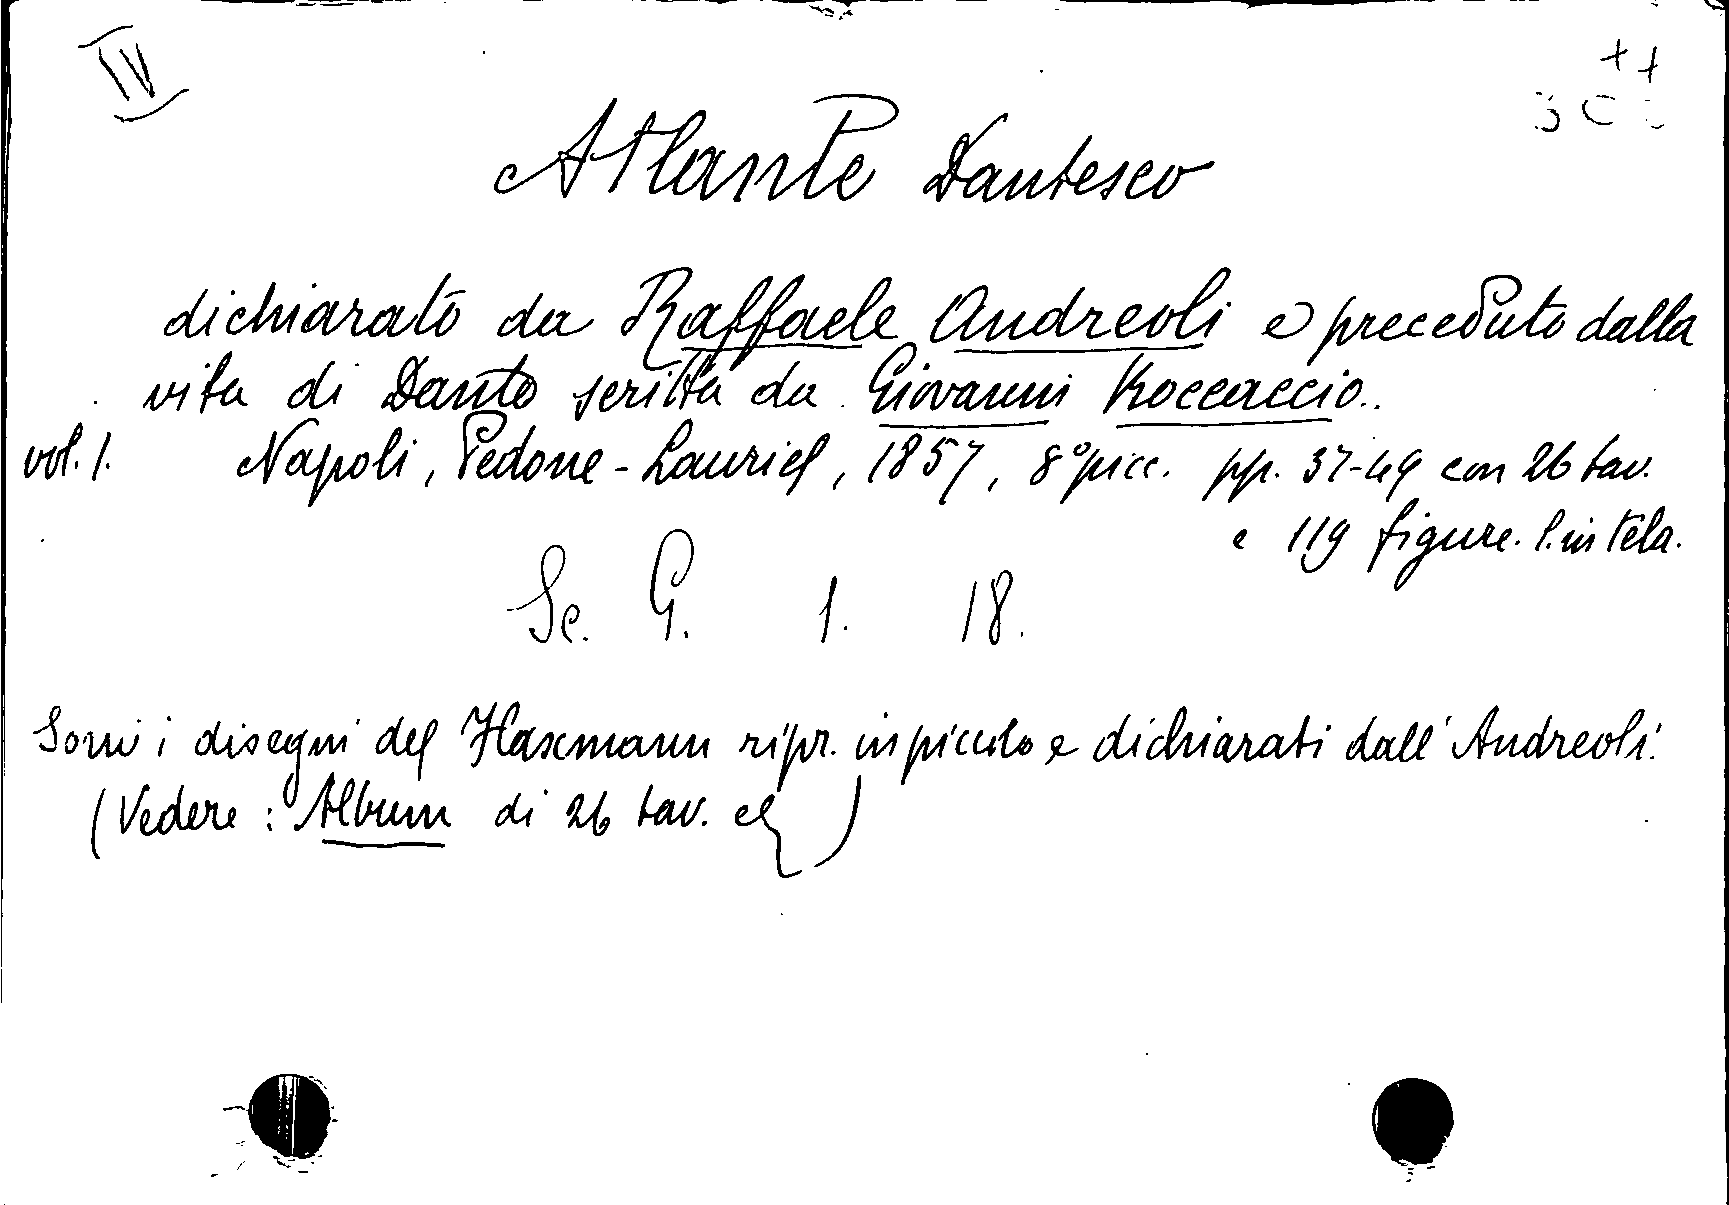 IV
Atlante Dantesco
dichiarato da Raffaele Andreoli e preceduto dalla
vita di Dante scritta da Giovanni Boccaccio.
vol. 1. Napoli, Pedone-Lauriel, 1857, 8° picc. pp. 37-49 con 26 tav.
e 119 figure. l. in tela.
Sc. G. 1. 18.
Sono i disegni del Flaxmann ripr. in piccolo e dichiarati dall'Andreoli.
(Vedere: Album di 26 tav. )